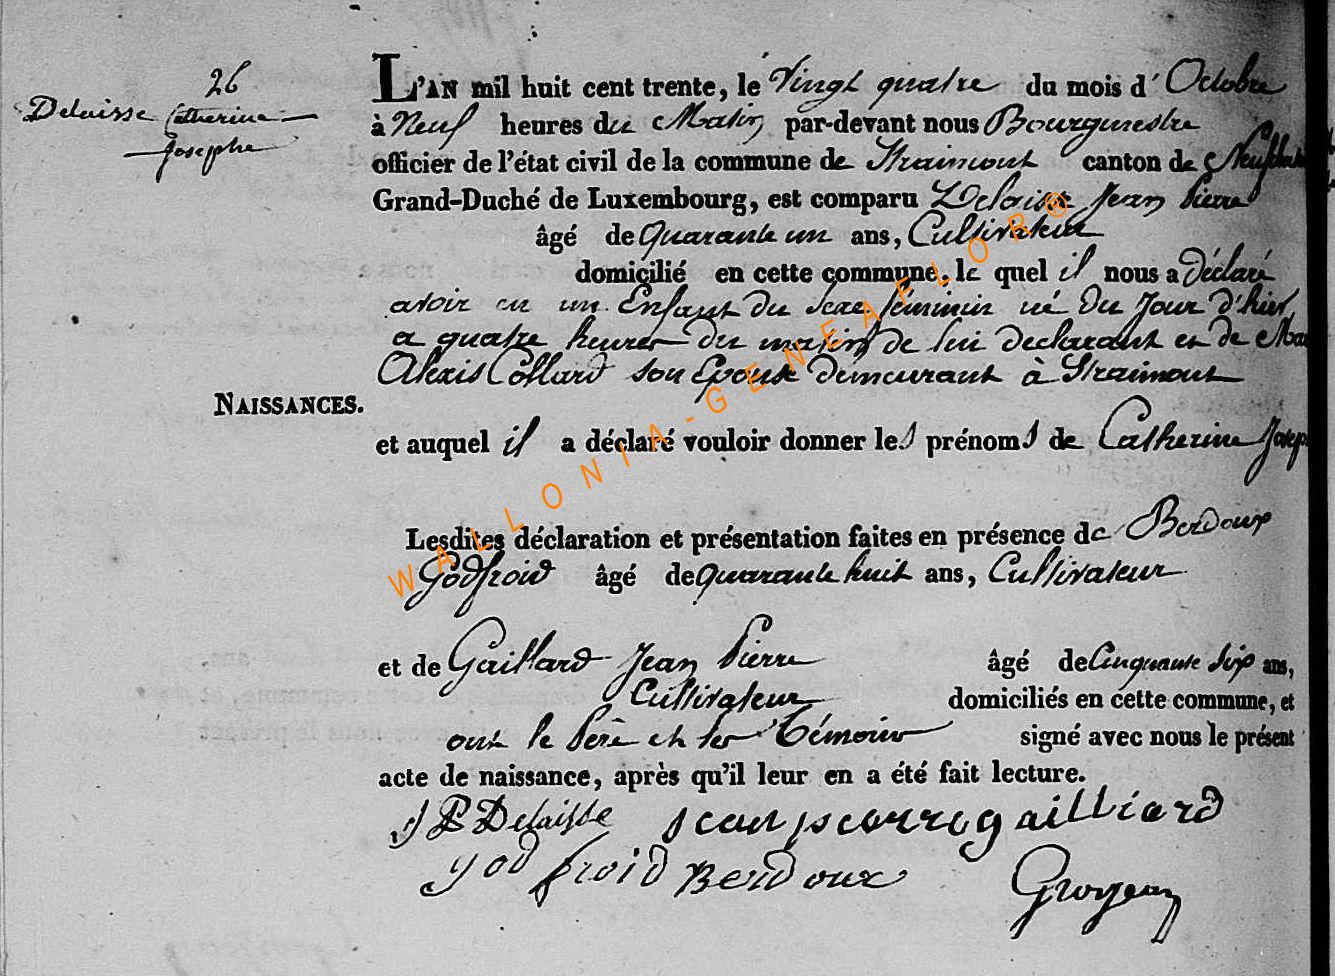 26
Delaisse Catherine
Josephe
L'AN mil huit cent trente, le Vingt quatre du mois d' Octobre
à Neuf heures du Matin par-devant nous Bourgmestre
officier de l'état civil de la commune de Straimont canton de
Grand-Duché de Luxembourg, est comparu Delaisse Jean Pierre
âgé de Quarante un ans, Cultivateur
domicilié en cette commune, le quel il nous a Déclaré
avoir eu un Enfant du sexe féminin né du Jour d'hier
a quatre heures du matin de lui declarant et de
Alexis Collard son Epouse demeurant à Straimont
NAISSANCES.
et auquel il a déclaré vouloir donner les prénoms de Catherine
Lesdites déclaration et présentation faites en présence de Berdoux
Godfroid âgé de quarante huit ans, Cultivateur
et de Gaillard Jean Pierre âgé de Cinquante six ans,
Cultivateur domiciliés en cette commune, et
ont le Père et les Témoins signé avec nous le présent
acte de naissance, après qu'il leur en a été fait lecture.
J P Delaisse jean pierre gailliard
godfroid Berdoux
Grosjean
WALLONIA-GENEAFLOR®